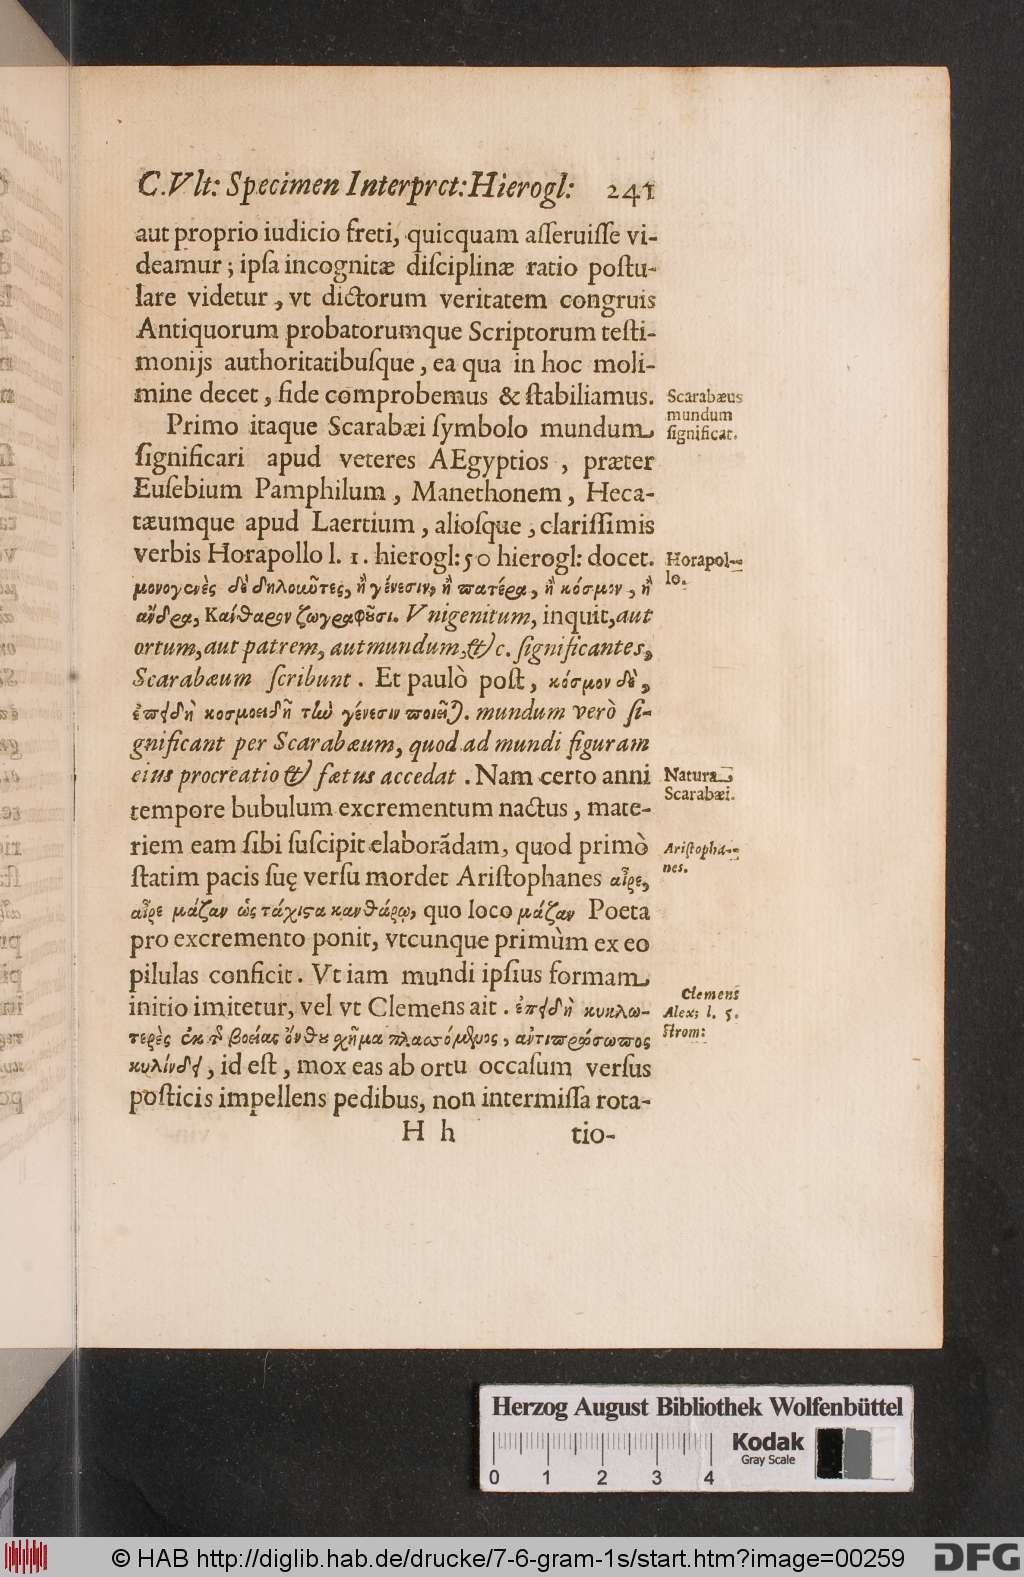 C.Vlt: Specimen Interpret: Hierogl: 241
aut proprio iudicio freti, quicquam asseruisse vi-
deamur; ipsa incognitæ disciplinæ ratio postu-
lare videtur, vt dictorum veritatem congruis
Antiquorum probatorumque Scriptorum testi-
monijs authoritatibusque, ea qua in hoc moli-
mine decet, fide comprobemus & stabiliamus.
Scarabæus
mundum
significat.
Primo itaque Scarabæi symbolo mundum
significari apud veteres AEgyptios, præter
Eusebium Pamphilum, Manethonem, Heca-
tæumque apud Laertium, aliosque, clarissimis
verbis Horapollo l. 1. hierogl: 50 hierogl: docet.
Horapol-
lo.
μονογενὲς δὲ δηλοιωῦτες, ἢ γένεσιν, ἢ πατέρα, ἢ κόσμον, ἢ
ἄνδρα, Κανθαρον ζωγραφοῦσι. Vnigenitum, inquit, aut
ortum, aut patrem, aut mundum, &c. significantes,
Scarabæum scribunt. Et paulò post, κόσμον δὲ,
ἐπειδὴ κοσμοειδῆ τὼ γένεσιν ποιεῖται. mundum verò si-
gnificant per Scarabæum, quod ad mundi figuram
eius procreatio & fætus accedat. Nam certo anni
Natura
Scarabæi.
tempore bubulum excrementum nactus, mate-
riem eam sibi suscipit elaborãdam, quod primò
Aristopha-
nes.
statim pacis suę versu mordet Aristophanes αἶρε,
αἶρε μάζαν ὡς τάχιστα κανθάρῳ, quo loco μάζαν Poeta
pro excremento ponit, vtcunque primùm ex eo
pilulas conficit. Vt iam mundi ipsius formam
initio imitetur, vel vt Clemens ait. ἐπειδὴ κυκλω-
Clemens
Alex; l. 5.
Strom:
τερὲς ἐκ τῆς βοείας ὄνθου χῆμα πλασσόμενος, ἀντιπρόσωπος
κυλίνδει, id est, mox eas ab ortu occasum versus
posticis impellens pedibus, non intermissa rota-
H h tio-
Herzog August Bibliothek Wolfenbüttel
Kodak
Gray Scale
0 1 2 3 4
© HAB http://diglib.hab.de/drucke/7-6-gram-1s/start.htm?image=00259
DFG